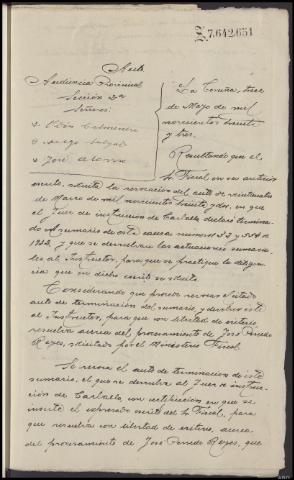 7.642.651
Auto
Audiencia Provincial
Sección 2ª
Señores:
José
La Coruña, trece
de Mayo de mil
novecientos treinta
y tres.
Resultando que el
Sr Fiscal en su anterior
escrito, solicita la revocación del auto de veintiuno
de Marzo de mil novecientos treinta y dos, en que
el Juez de instrucción de Carballo declaró termina-
do el sumario de esta causa número 33 y
1932, y que se devuelvan las actuaciones sumaria-
les al Instructor, para que se practique la diligen-
cia que en dicho escrito solicita.
Considerando que procede revocar el citado
auto de terminación del sumario, y devolver éste
al Instructor, para que con libertad de criterio,
resuelva acerca del procesamiento de José Penedo
Rozas, solicitado por el Ministerio Fiscal.
Se revoca el auto de terminación de este
sumario, el que se devuelva al Juez de instruc-
ción de Carballo, con certificación en que se
inserte el expresado escrito del Sr Fiscal, para
que resuelva con libertad de criterio, acerca
del procesamiento de José Penedo Rozas, que